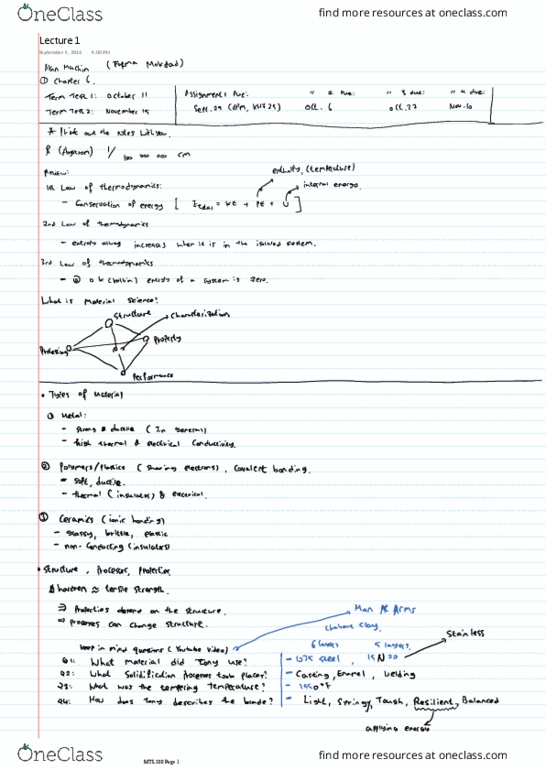 OneClass
find more resources at oneclass.com
Lecture 1
September 5, 2018 9:00 PM
① Chapter 6.
Term Test 1: October 11
Assignment 1 Due: " 2 Due: " 3 due: " 4 due:
Term Test 2: November 15
Sept. 29 Oct. 6 Oct. 27 Nov. 10
out the notes
cm
Review:
enthalpy, (temperature)
1st Law of thermodynamics:
internal energy.
- Conservation of energy [ Etotal = KE + PE + U ]
2nd Law of thermodynamics
- entropy always increases when it is in the isolated system.
3rd Law of thermodynamics
- @ 0 k (kelvin) entropy of a system is zero.
What is Material Science?
Structure
Characterization
Property
Processing
Performance
• Types of Material
① Metal:
- strong & ductile (In general)
- high thermal & electrical conductivity.
② Polymers/Plastics (sharing electrons), covalent bonding.
- soft, ductile.
- thermal (insulators) & electrical.
③ Ceramics (ionic bonding)
- glassy, brittle, elastic
- non-conducting (insulators)
• Structure, Processes, Properties
hardness ≈ tensile strength.
⇒ Properties depend on the structure.
⇒ processes can change structure.
Man At Arms
keep in mind questions (Youtube Video)
6 layers 5 layers
Stainless
Q1: What material did Tony use?
- 1075 steel, 15N20
Q2: What Solidification processes took place?
- Casting, Enamel, Welding
Q3: What was the tempering temperature?
Q4: How does Tony describes the blade?
- Light, Springy, Tough, Resilient, Balanced
applying energy
MTL 100 Page 1
OneClass
find more resources at oneclass.com